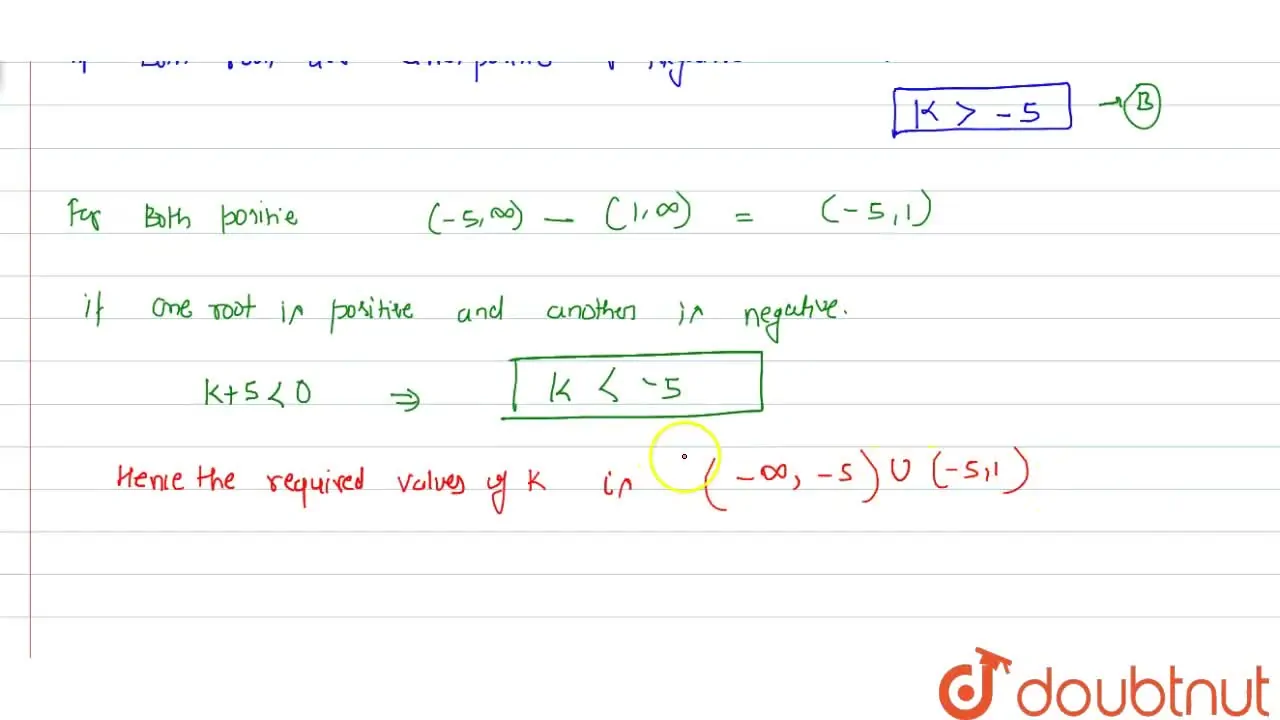 K > -5 → B
For Both positie (-5,∞) — (1,∞) = (-5,1)
if one root is positive and another is negative.
K+5<0 ⇒ K < -5
Hence the required values of K is (-∞, -5) ∪ (-5,1)
doubtnut